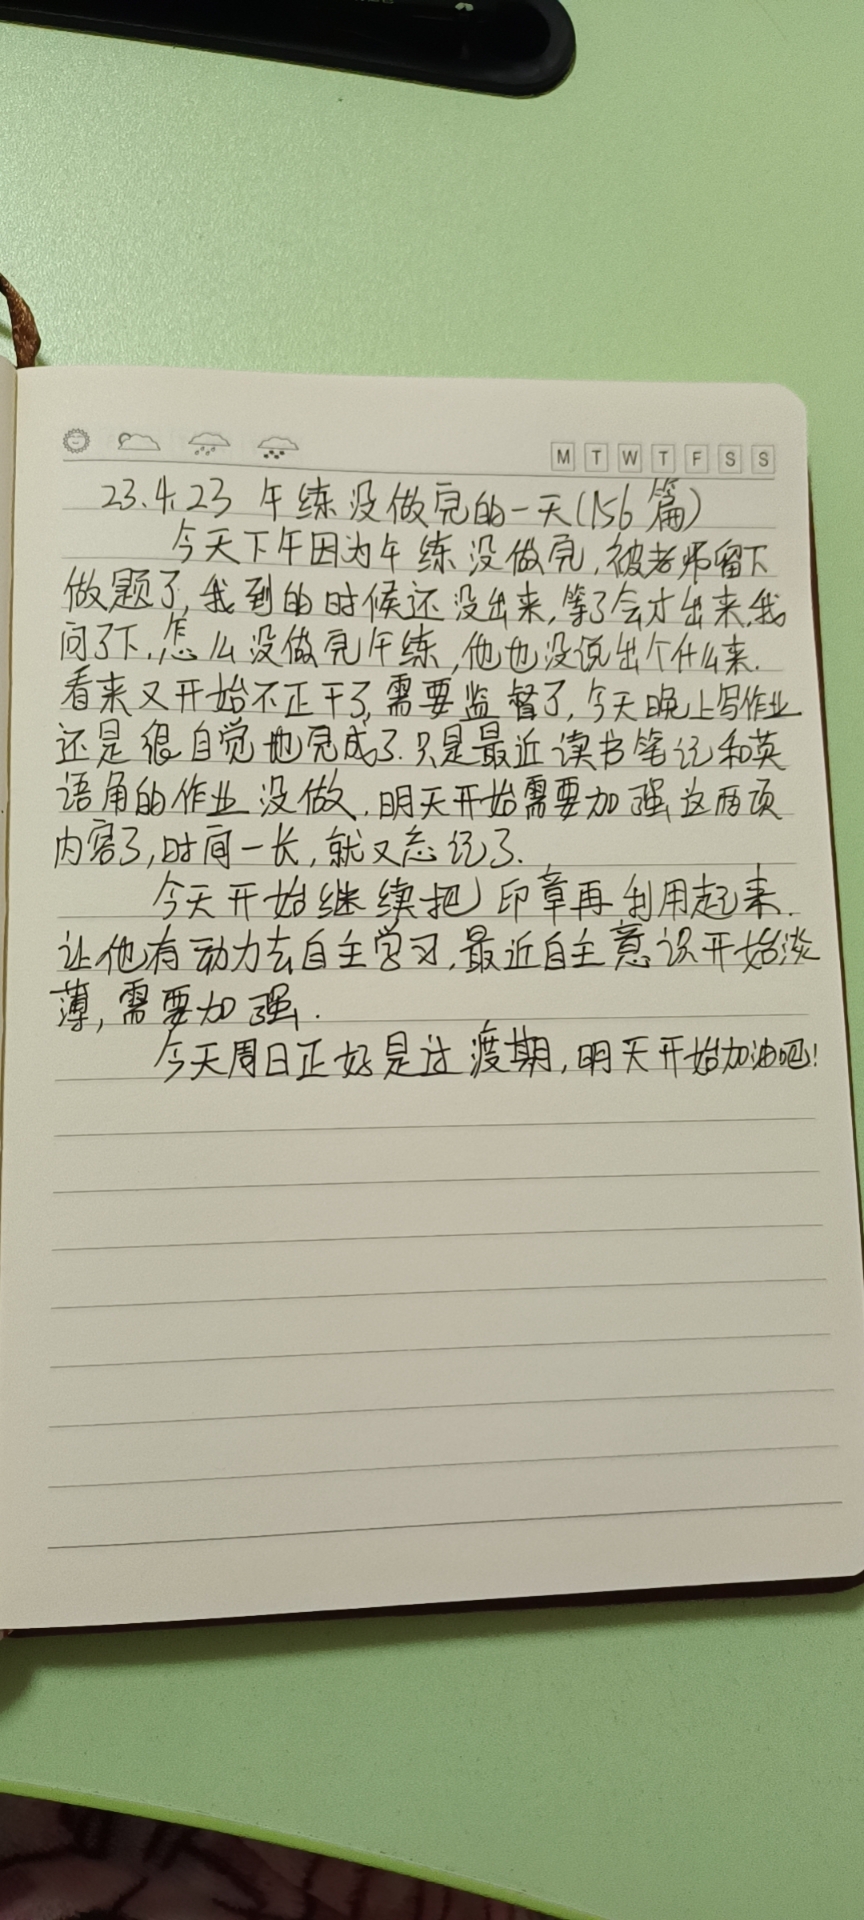 M T W T F S S
23.4.23 午练没做完的一天(156篇)
今天下午因为午练没做完,被老师留下
做题了,我到的时候还没出来,等了会才出来.我
问了下,怎么没做完午练,他也没说出个什么来.
看来又开始不正干了,需要监督了,今天晚上写作业
还是很自觉地完成了.只是最近读书笔记和英
语角的作业没做.明天开始需要加强这两项
内容了,时间一长,就又忘记了.
今天开始继续把印章再利用起来.
让他有动力去自主学习,最近自主意识开始淡
薄,需要加强.
今天周日正好是过渡期,明天开始加油吧!